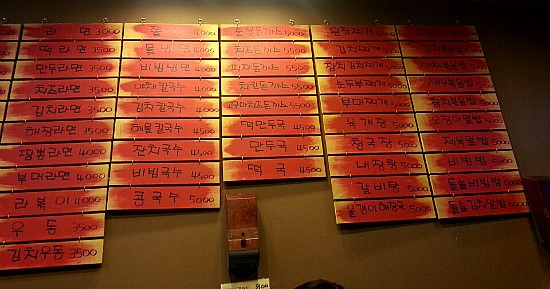 라면 3000
떡라면 3500
만두라면 3500
치즈라면 3500
김치라면 3500
해장라면 3500
짬뽕라면 3500
부대라면 3500
라볶이 4000
우동 3500
김치우동 3500
4000
물냉면 4000
비빔냉면 4000
야채칼국수 4000
김치칼국수 4000
해물칼국수 4500
잔치국수 4500
비빔국수 4500
콩국수 5000
돈까스 5000
치킨돈까스 5500
피자돈까스 5500
치즈돈까스 5500
고구마치즈돈까스 5500
떡만두국 4500
만두국 4500
떡국 4500
된장찌개
김치찌개 5000
참치김치찌개 5000
순두부찌개 5000
부대찌개 5000
육개장 5000
청국장 5000
내장탕 5000
갈비탕 5000
올갱이해장국 5000
김치볶음밥
새우볶음밥
참치볶음밥
오징어덮밥
제육덮밥
비빔밥
돌솥비빔밥
돌솥김치알밥
800